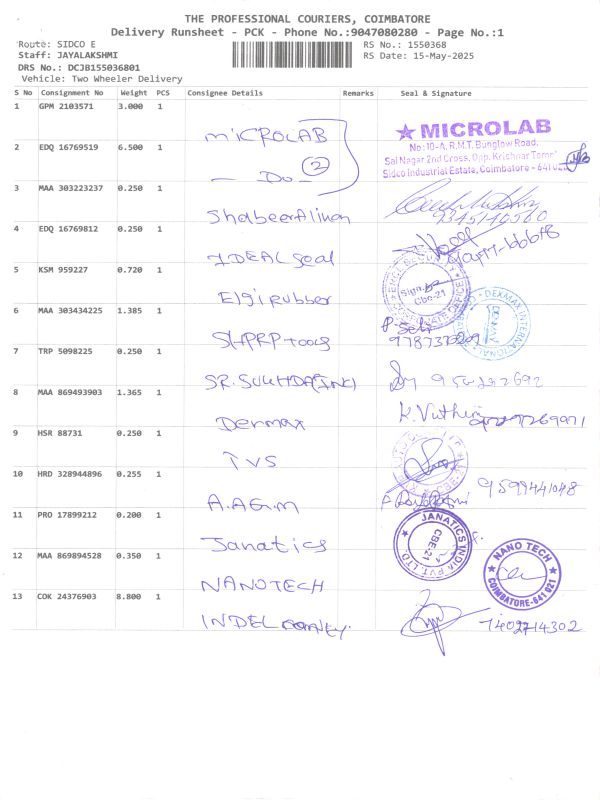 THE PROFESSIONAL COURIERS, COIMBATORE
Delivery Runsheet - PCK - Phone No.:9047080280 - Page No.:1
Route: SIDCO E RS No.: 1550368
Staff: JAYALAKSHMI RS Date: 15-May-2025
DRS No.: DCJB155036801
Vehicle: Two Wheeler Delivery
S No Consignment No Weight PCS Consignee Details Remarks Seal & Signature
1 GPM 2103571 3.000 1 MICROLAB
★ MICROLAB
No: 10-A, R.M.T. Bunglow Road,
Sai Nagar 2nd Cross, Opp. Krishnar
Sidco Industrial Estate, Coimbatore - 641 021
2 EDQ 16769519 6.500 1 - Do - 2
3 MAA 303223237 0.250 1 Shabeer Alikhan 9345140560
4 EDQ 16769812 0.250 1 IDEAL Seal
5 KSM 959227 0.720 1 Elgi rubber
Cbe-21
6 MAA 303434225 1.385 1 SHPRP tools 9787373209
DEXMAX INTERNATIONAL
7 TRP 5098225 0.250 1 SR. SUKHDA (INC)
8 MAA 869493903 1.365 1 Dexmax
9 HSR 88731 0.250 1 TVS
10 HRD 328944896 0.255 1 A.AG.M 9599441048
11 PRO 17899212 0.200 1 Janatics
JANATICS INDIA PVT. LTD
CBE-21
12 MAA 869894528 0.350 1 NANOTECH
★ NANO TECH ★
COIMBATORE-641 021
13 COK 24376903 8.800 1 INDEL money. 7402714302